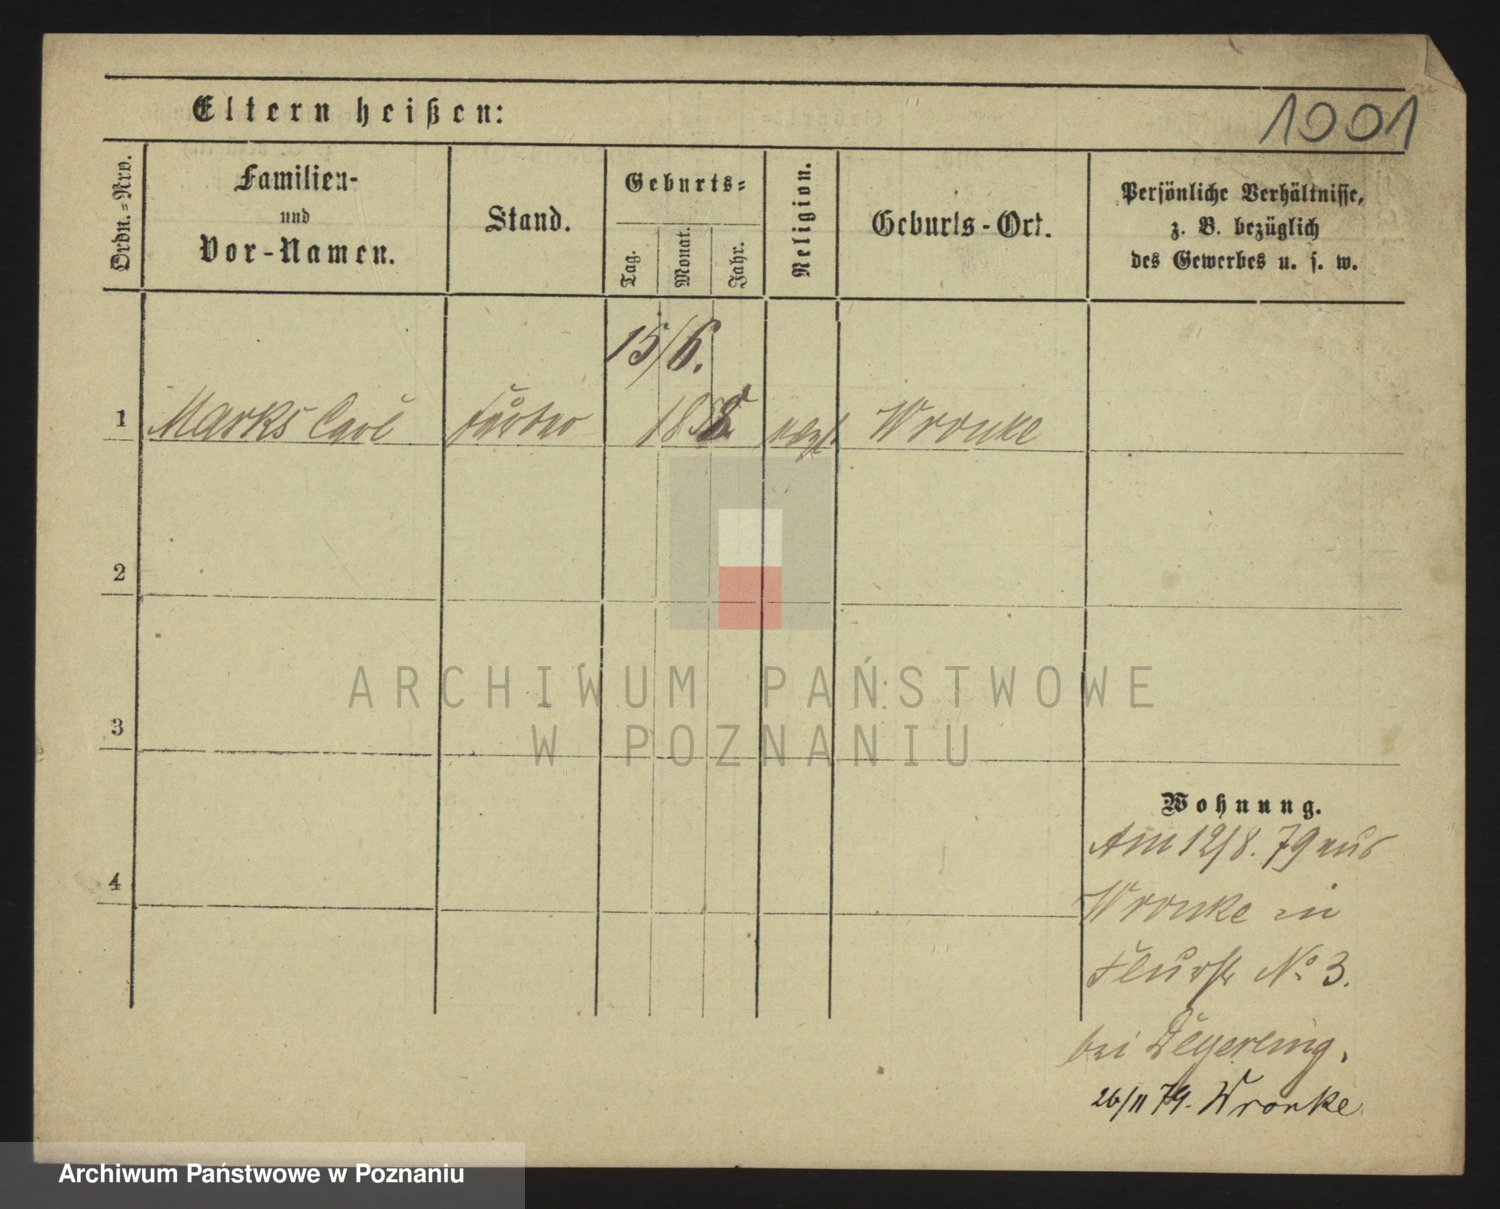 1001
Eltern heißen:
Ordn.=Nro.
Familien-
und
Vor-Namen.
Stand.
Geburts=
Tag.
Monat.
Jahr.
Religion.
Geburts-Ort.
Persönliche Verhältnisse,
z. B. bezüglich
des Gewerbes u. s. w.
15/6.
1 Marks Carl 1858 Wronke
2
3
4
ARCHIWUM PAŃSTWOWE
W POZNANIU
Wohnung.
Am 12/8. 79 aus
Wronke in
No 3.
bei
26/11 79. Wronke
Archiwum Państwowe w Poznaniu